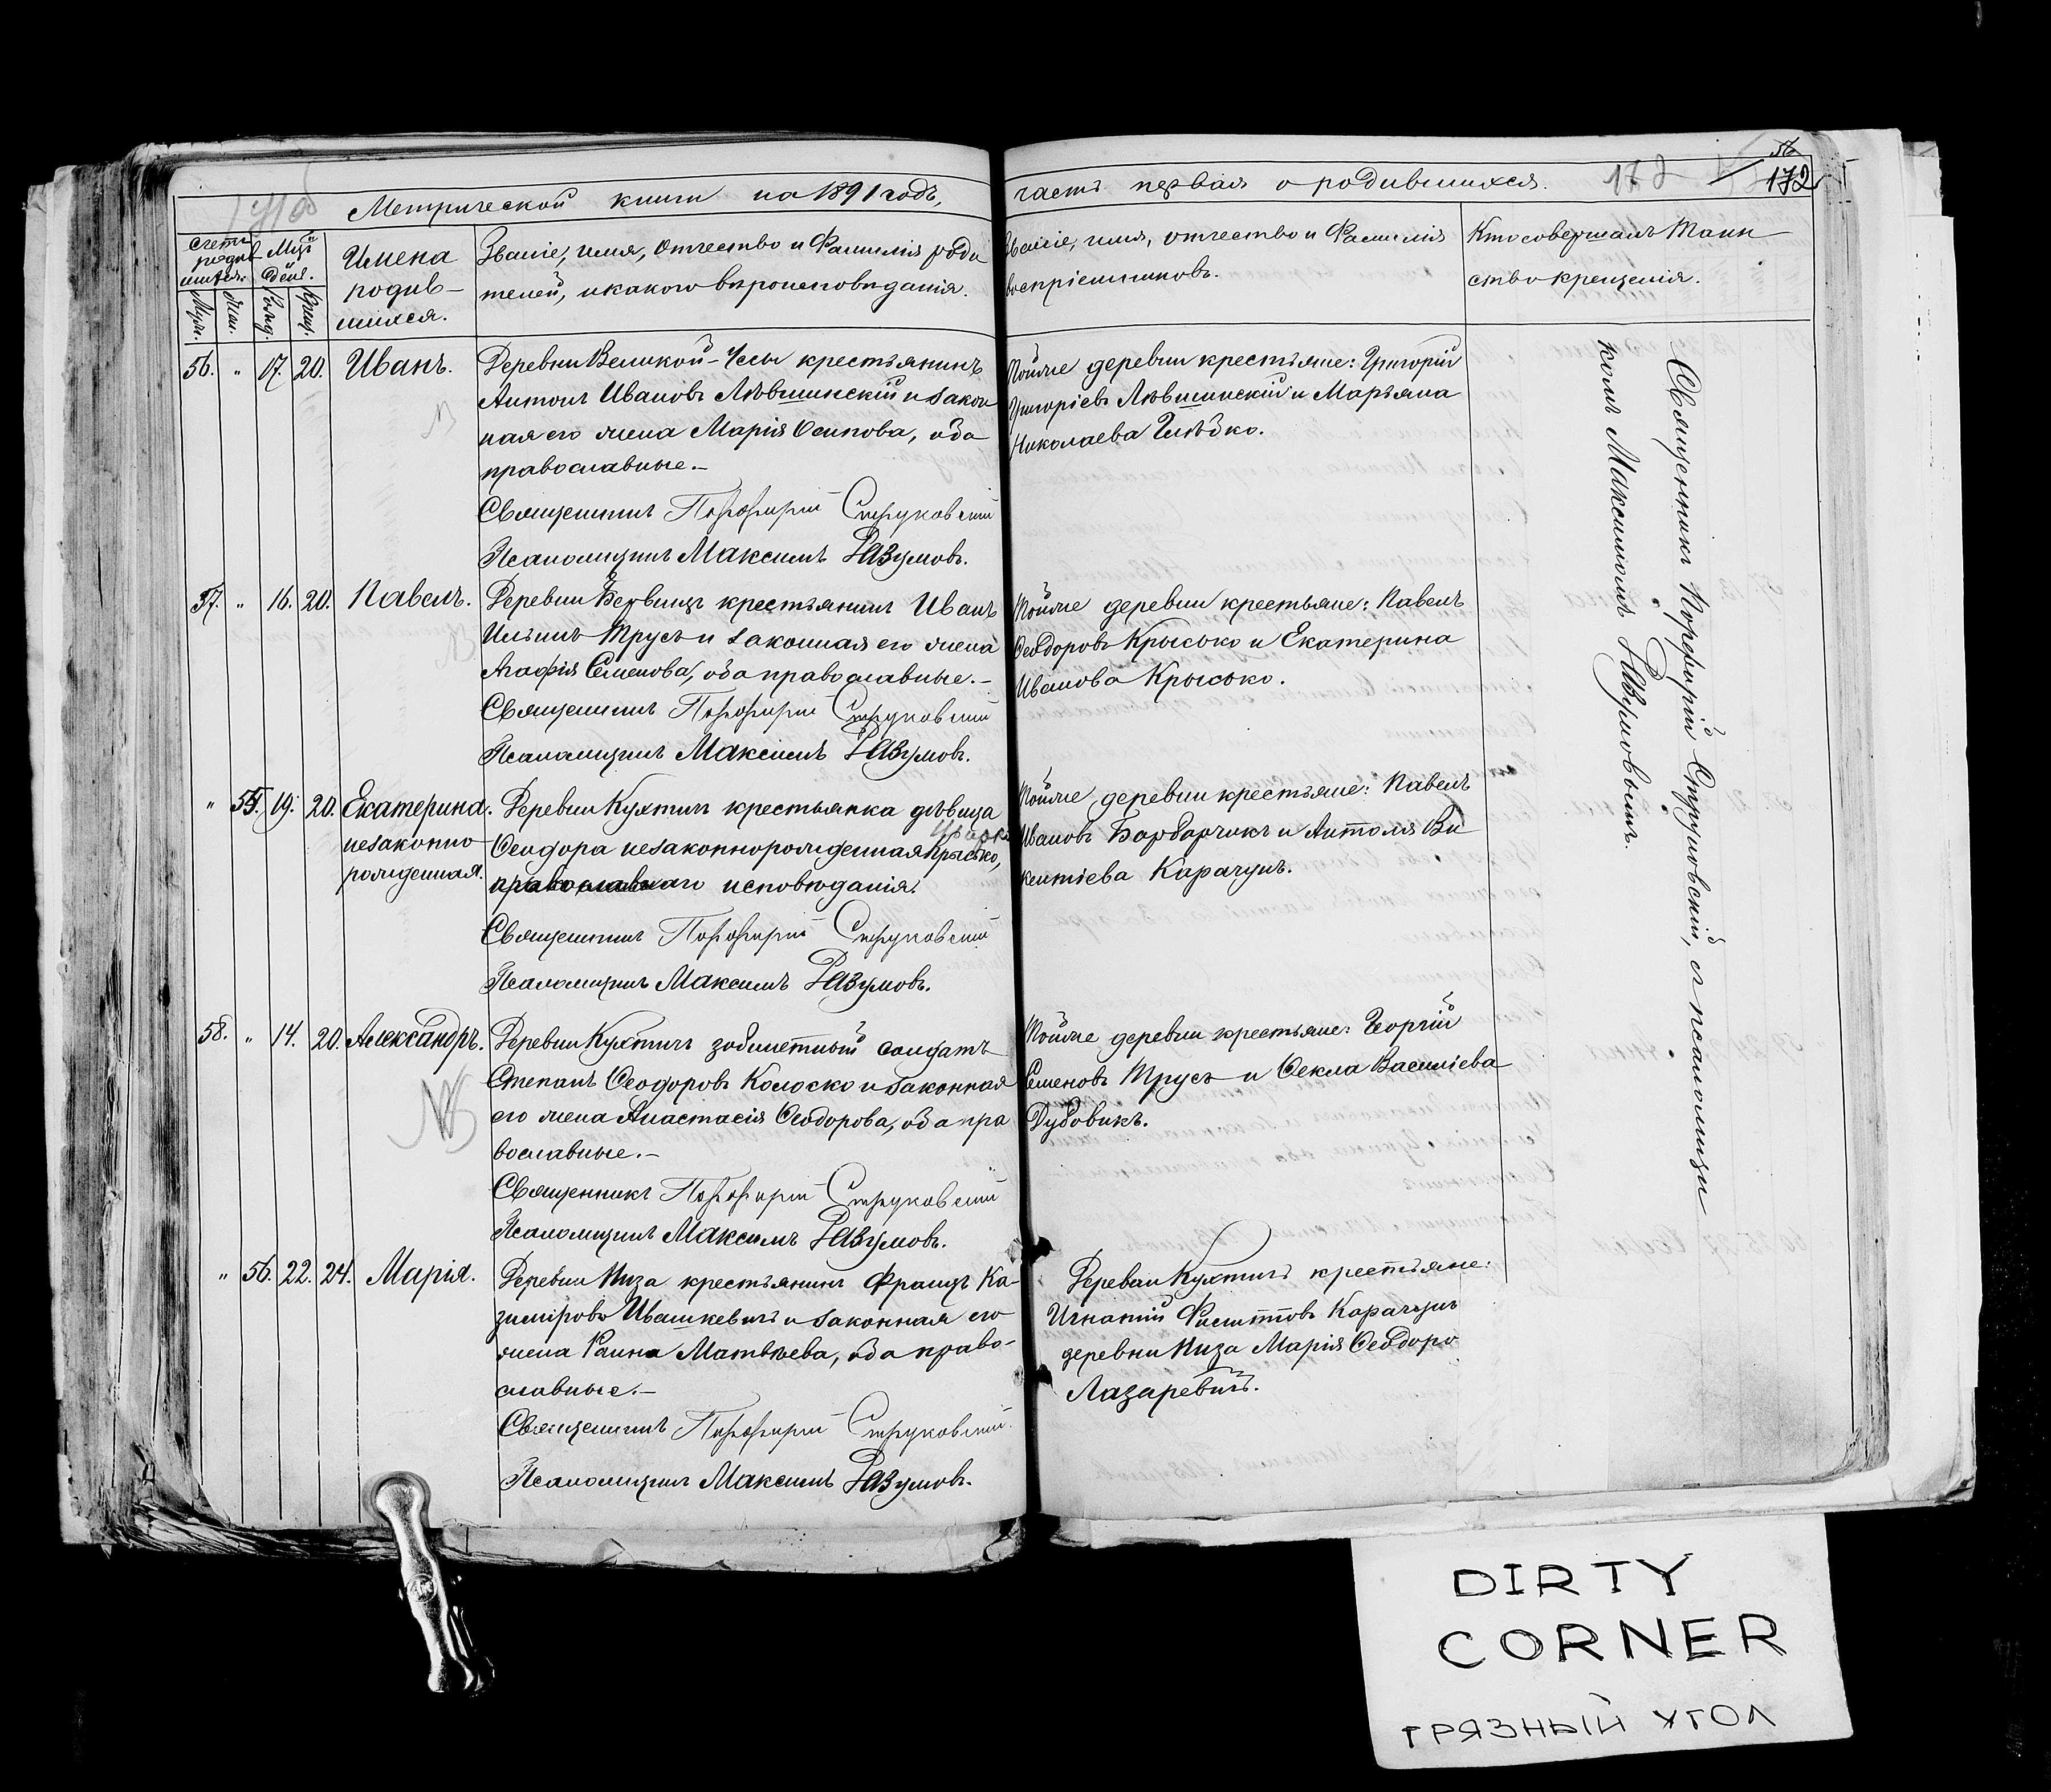 Метрической книги на 1891 годъ,
часть первая о родившихся.
172
счетъ родив шихся.
Муж.
Жен.
Мѣц и день.
Рожд.
Крещ.
Имена
родив-
шихся.
Званіе, имя, отчество и Фамилія роди
телей, и какого вѣроисповѣданія.
Званіе, имя, отчество и Фамилія
воспріемниковъ.
Кто совершалъ Таин
ство крещенія.
56. " 17. 20. Иванъ.
Деревни Великой-Чесы крестьянинъ
Антонъ Ивановъ Лѣвшинскій и закон
ная его жена Марія Осипова, оба
православные.-
Священникъ Порфирій Струковскій
Псаломщикъ Максимъ Разумовъ.
Тойже деревни крестьяне: Григорій
Григоріевъ Лѣвшинскій и Марьяна
Николаева Глѣбко.
57. " 16. 20. Павелъ.
Деревни Бервищъ крестьянинъ Иванъ
Ильинъ Трусъ и законная его жена
Агафія Семенова, оба православные.-
Священникъ Порфирій Струковскій
Псаломщикъ Максимъ Разумовъ.
Тойже деревни крестьяне: Павелъ
Ѳеодоровъ Крысько и Екатерина
Иванова Крысько.
" 55. 19. 20. Екатерина.
незаконно
рожденная.
Деревни Кухтичъ крестьянка дѣвица
Ѳеодора незаконнорожденная Крысько,
православнаго исповѣданія.
Священникъ Порфирій Струковскій
Псаломщикъ Максимъ Разумовъ.
Тойже деревни крестьяне: Павелъ
Ивановъ Барбарчикъ и Антоля Ви
кентіева Карачунъ.
58. " 14. 20. Александръ.
Деревни Кухтичъ зобилетный солдатъ
Степанъ Ѳеодоровъ Колоско и законная
его жена Анастасія Ѳеодорова, оба пра
вославные.-
Священникъ Порфирій Струковскій
Псаломщикъ Максимъ Разумовъ.
Тойже деревни крестьяне: Георгій
Семеновъ Трусъ и Ѳекла Василіева
Дубовикъ.
" 56. 22. 24. Марія.
Деревни Низа крестьянинъ Францъ Ка-
зиміровъ Ивашкевичъ и законная его
жена Раина Матвѣева, оба право-
славные.-
Священникъ Порфирій Струковскій
Псаломщикъ Максимъ Разумовъ.
Деревни Кухтичъ крестьяне:
Игнатій Филиттовъ Карачунъ
деревни Низа Марія Ѳеодоро
Лазаревичъ.
Священникъ Порфирій Струковскій, съ псаломщи
комъ Максимомъ Разумовымъ.
DIRTY
CORNER
ГРЯЗНЫЙ УГОЛ